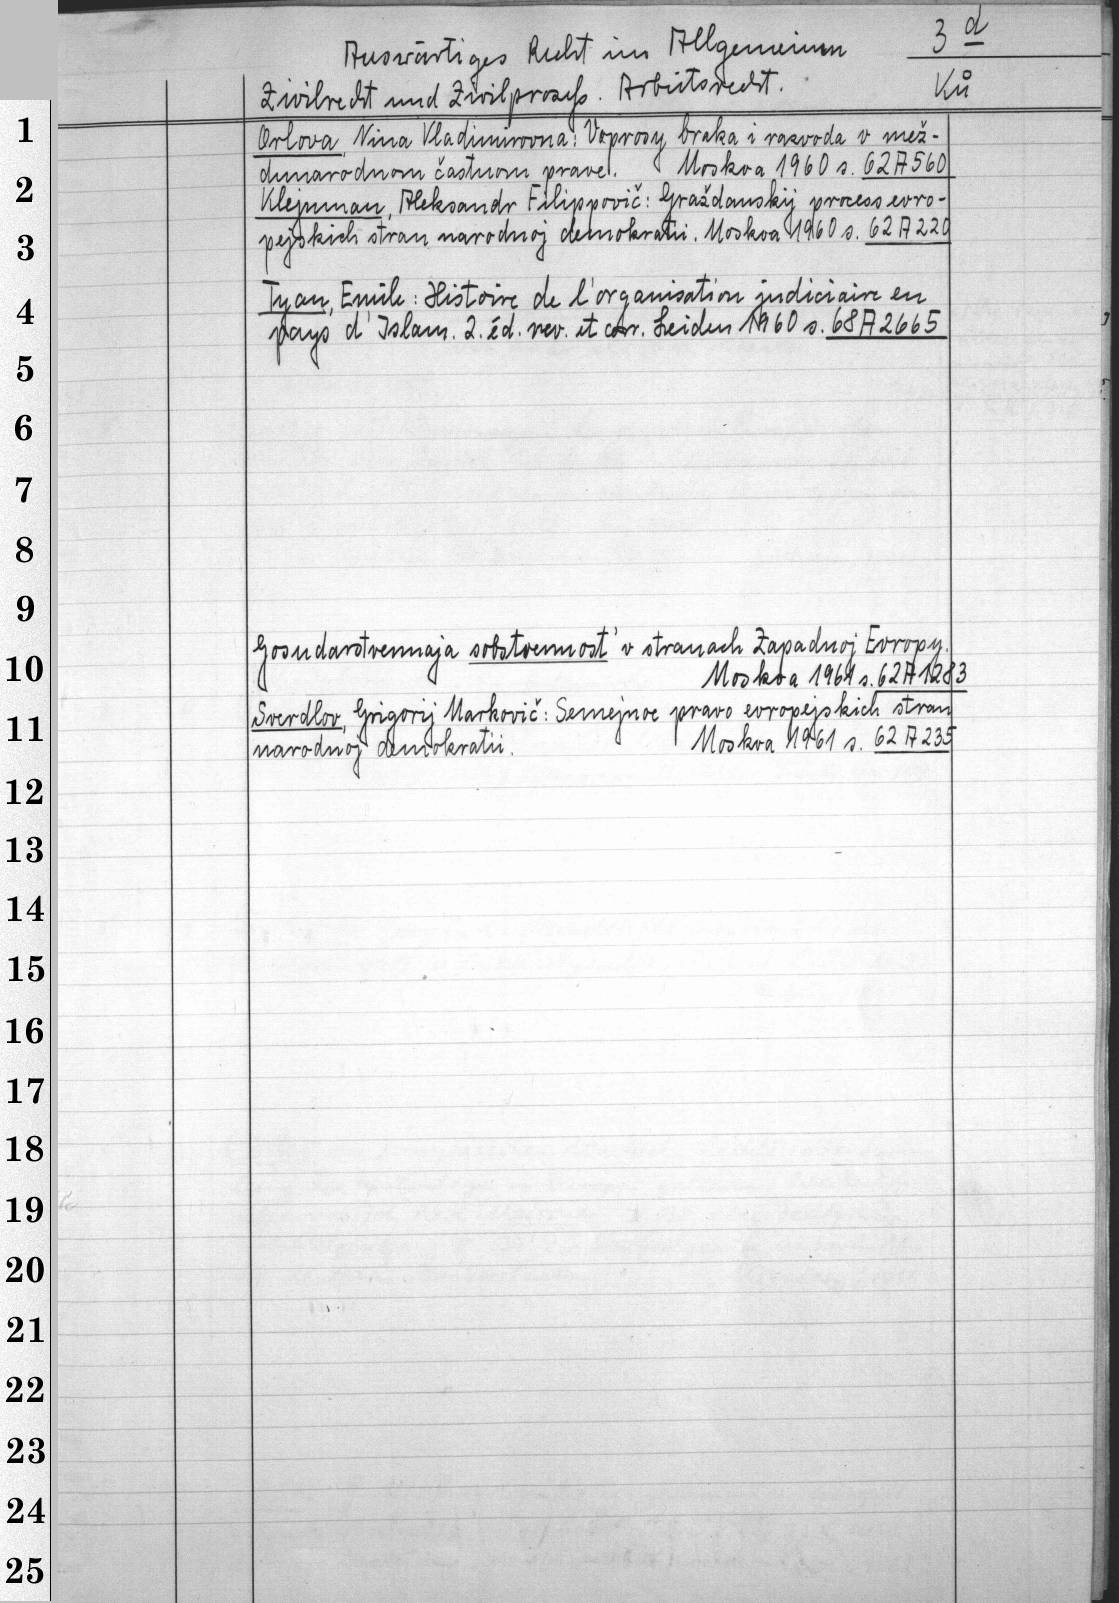 Auswärtiges Recht im Allgemeinen
3 d
Zivilrecht und Zivilprozeß. Arbeitsrecht.
Ků
1
Orlova, Nina Vladimirovna: Voprosy braka i razvoda v mež-
dunarodnom častnom prave. Moskva 1960 s. 62A560
2
Klejnman, Aleksandr Filippovič: Graždanskij process evro-
3
pejskich stran narodnoj demokratii. Moskva 1960 s. 62A220
Tyan, Emile: Histoire de l'organisation judiciaire en
4
pays d'Islam. 2. éd. rev. et corr. Leiden 1960 s. 68A2665
5
6
7
8
9
Gosudarstvennaja sobstvennost' v stranach Zapadnoj Evropy.
10
Moskva 1961 s. 62A1283
Sverdlov, Grigorij Markovič: Semejnoe pravo evropejskich stran
11
narodnoj demokratii. Moskva 1961 s. 62A235
12
13
14
15
16
17
18
19
20
21
22
23
24
25